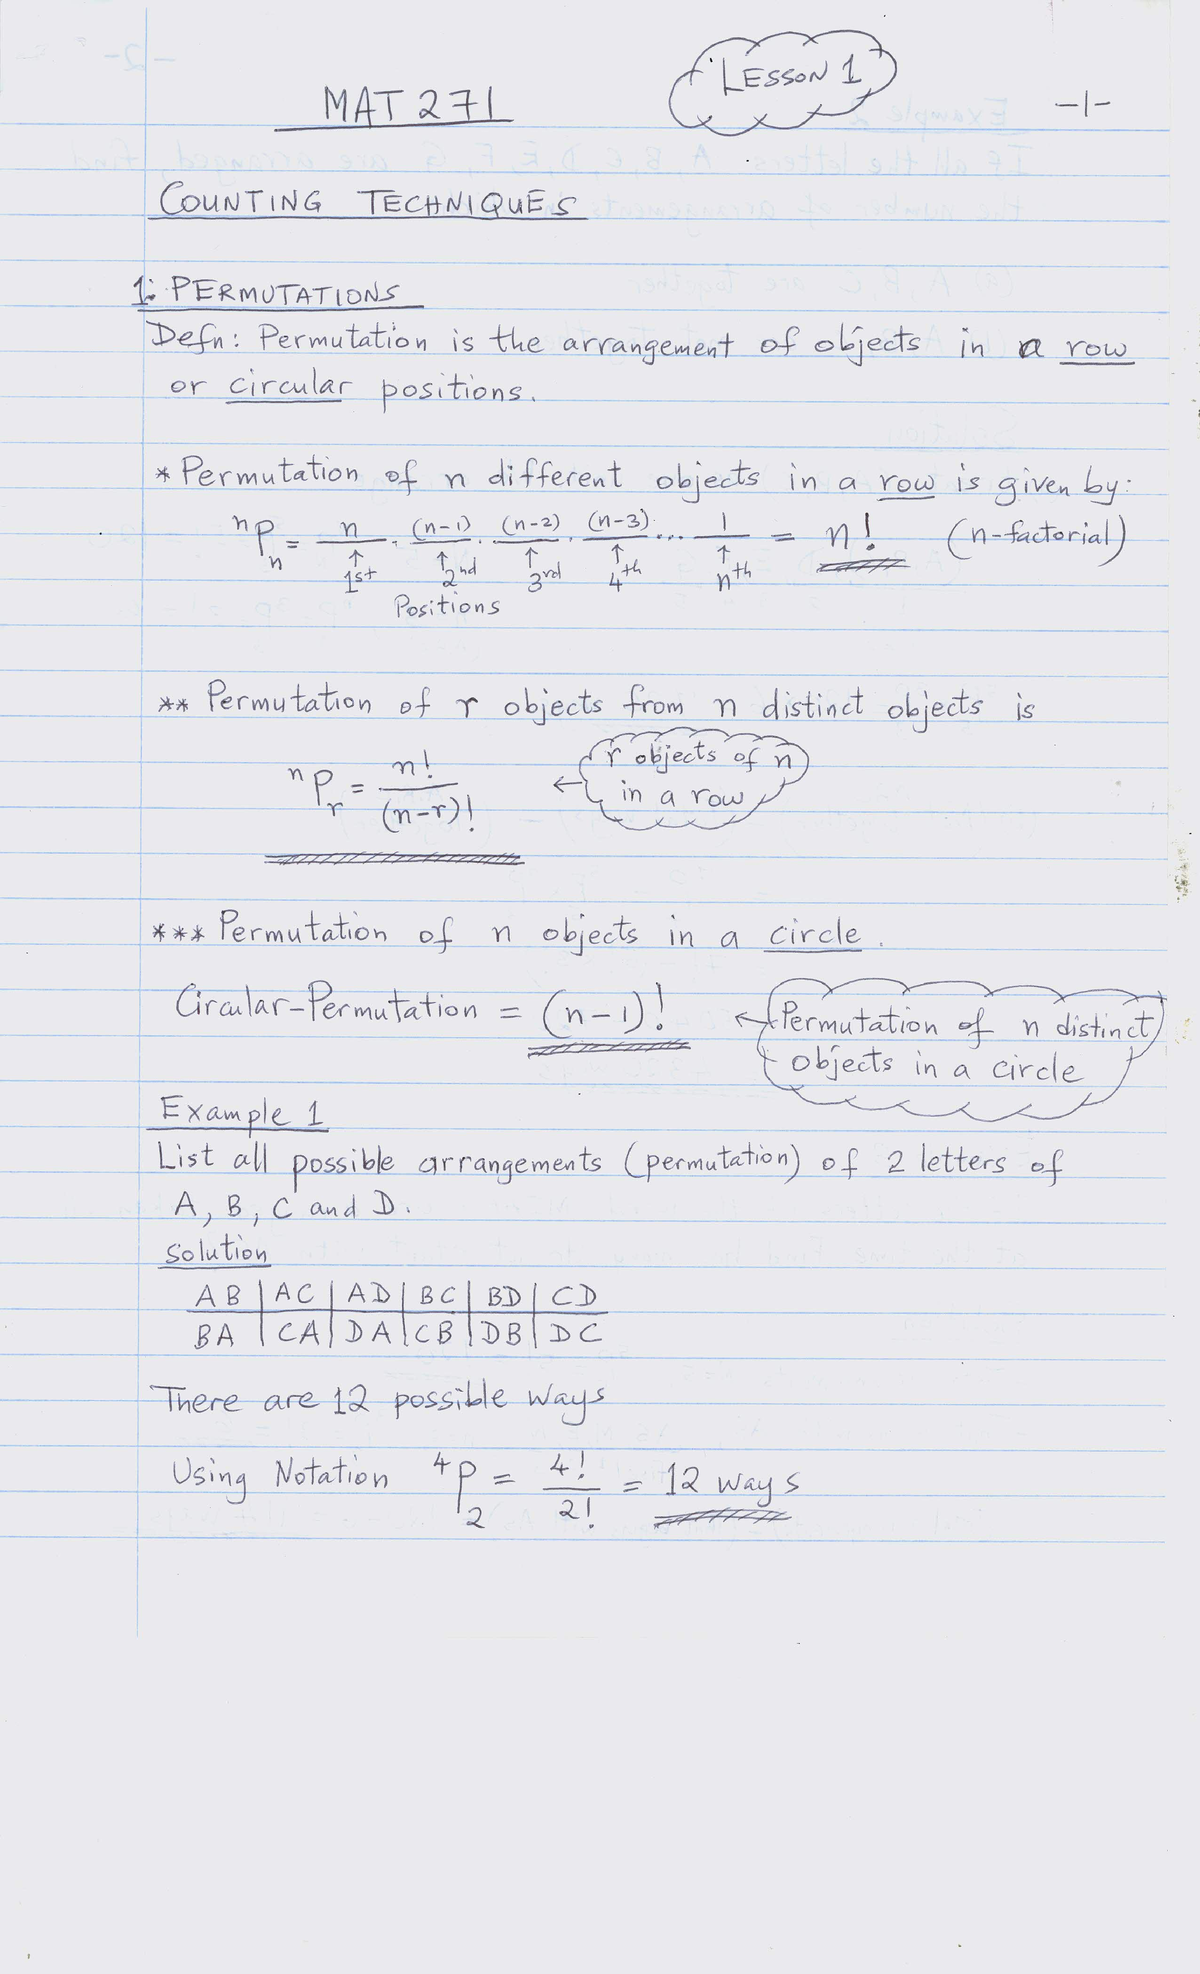 MAT 271
LESSON 1
-1-
COUNTING TECHNIQUES
1: PERMUTATIONS
Defn: Permutation is the arrangement of objects in a row
or circular positions.
* Permutation of n different objects in a row is given by:
ⁿPₙ = n . (n-1) . (n-2) . (n-3) ... 1 = n! (n-factorial)
↑ ↑ ↑ ↑ ↑
1st 2nd 3rd 4th nth
Positions
** Permutation of r objects from n distinct objects is
ⁿPᵣ = n!/(n-r)! ← r objects of n
in a row
*** Permutation of n objects in a circle.
Circular-Permutation = (n-1)! ← Permutation of n distinct
objects in a circle
Example 1
List all possible arrangements (permutation) of 2 letters of
A, B, C and D.
Solution
AB | AC | AD | BC | BD | CD
BA | CA | DA | CB | DB | DC
There are 12 possible ways
Using Notation ⁴P₂ = 4!/2! = 12 ways